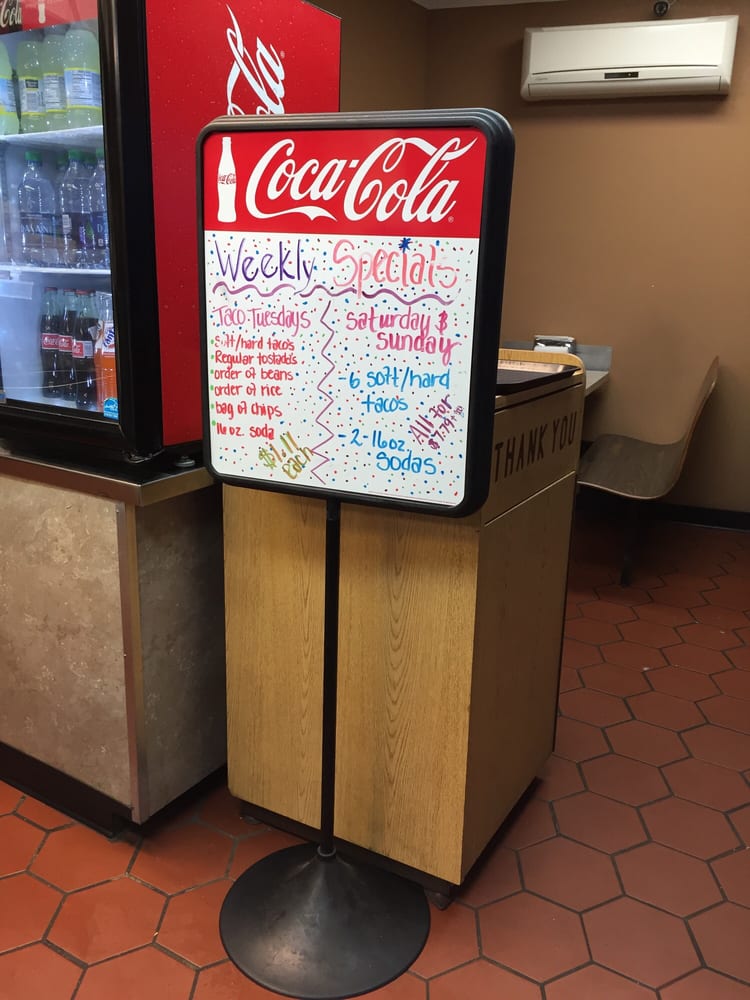 Coca-Cola
Weekly Specials
Taco Tuesdays
soft/hard taco's
Regular tostado's
order of beans
order of rice
bag of chips
16 oz. soda
$1.11
each
Saturday &
Sunday
-6 soft/hard
tacos
All for
$7.79+tx
-2-16oz.
sodas
THANK YOU